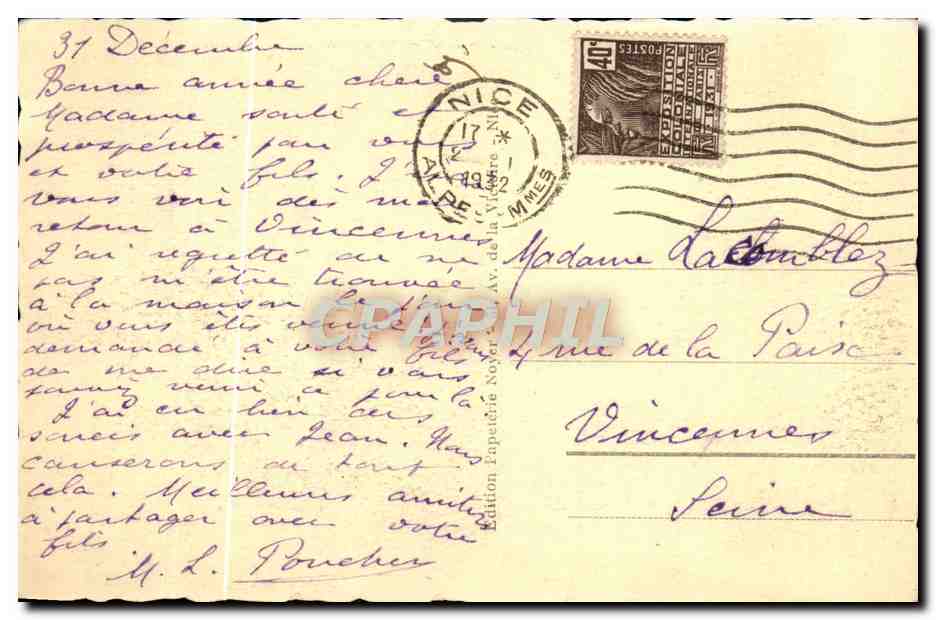 31 Décembre
Bonne année chère
Madame santé et
prospérité pour vous
et votre fils. J'
vous voir dès mon
retour à Vincennes
J'ai regretté de ne
pas m'être trouvée
à la maison le jour
où vous êtes venue
demandé à votre fils
de me dire si vous
saviez venir ce jour là
J'ai eu bien des
soucis avec Jean. Nous
causerons de tout
cela. Meilleures amitiés
à partager avec votre
fils
M. L. Poucher
Edition Papeterie Noyer - Av. de la Victoire - Nice
NICE
17 *
2 - 1
1932
ALPES MMES
40c
POSTES
EXPOSITION
COLONIALE
INTERNATIONALE
PARIS 1931
CPAPHIL
Madame Lacomblez
4 rue de la Paix
Vincennes
Seine